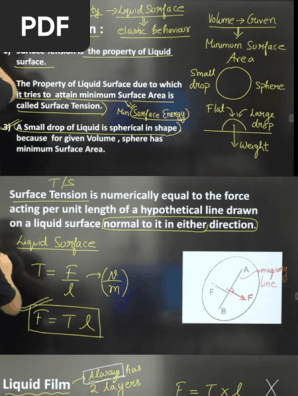 PDF
Liquid Surface
elastic behaviour
Volume → Given
Minimum Surface
Area
Small
drop
Sphere
Flat
Large
drop
Weight
Surface Tension is the property of Liquid
surface.
The Property of Liquid Surface due to which
it tries to attain minimum Surface Area is
called Surface Tension.
Min Surface Energy
3) A Small drop of Liquid is spherical in shape
because for given Volume , sphere has
minimum Surface Area.
T/S
Surface Tension is numerically equal to the force
acting per unit length of a hypothetical line drawn
on a liquid surface normal to it in either direction.
Liquid Surface
T = F/l → (N/m)
F = T l
A
Imaginary
line
F
F
B
Liquid Film
Always has
2 layers
F = T x l X